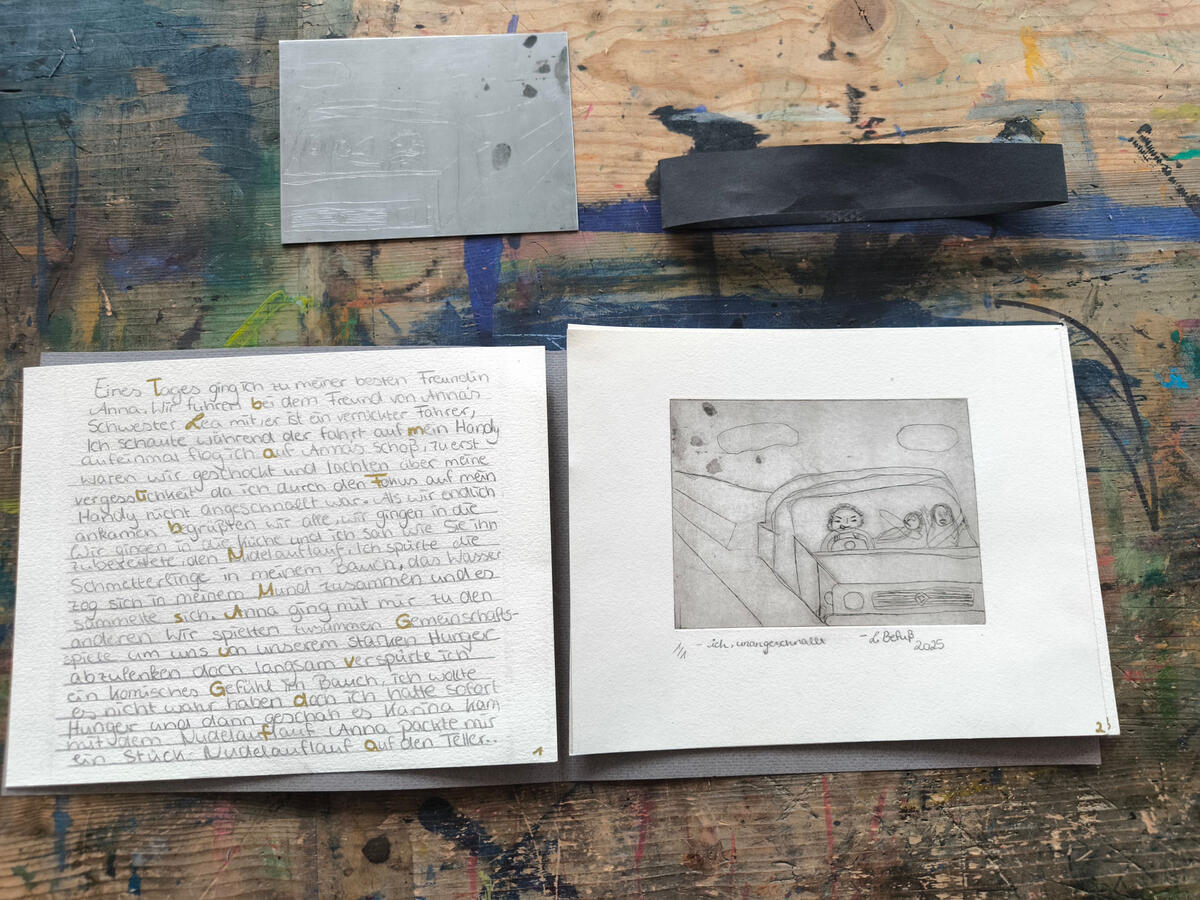 Eines Tages ging ich zu meiner besten Freundin
Anna. Wir fuhren bei dem Freund von Annas
Schwester Lea mit, er ist ein verrückter Fahrer,
Ich schaute während der fahrt auf mein Handy
aufeinmal flog ich auf Annas schoß, zu erst
waren wir geschockt und lachten über meine
vergesslichkeit da ich durch den Fokus auf mein
Handy nicht angeschnallt war. Als wir endlich
ankamen begrüßten wir alle, wir gingen in die
Wir gingen in die Küche und ich sah wie Sie ihn
zubereitete, den Nudelauflauf. Ich spürte die
Schmetterlinge in meinem Bauch, das Wasser
zog sich in meinem Mund zusammen und es
sammelte sich. Anna ging mit mir zu den
anderen Wir spielten zusammen Gemeinschafts-
spiele um uns um unserem starken Hunger
abzulenken doch langsam verspürte ich
ein komisches Gefühl im Bauch, ich wollte
es nicht wahr haben doch ich hatte sofort
Hunger und dann geschah es Karina kam
mit dem Nudelauflauf Anna packte mir
ein Stück Nudelauflauf auf den Teller..
1
1/1 - ich, unangeschnallt - L. 2025
2